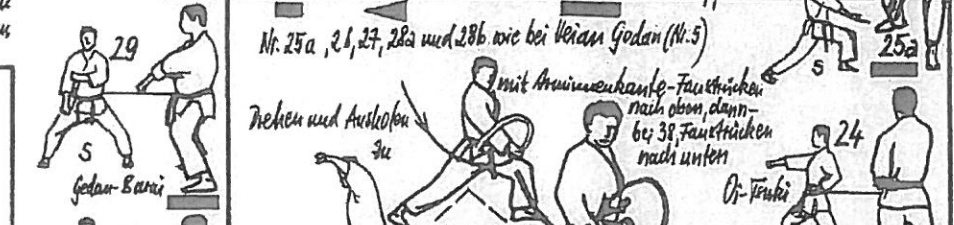 29
S
Gedan-Barai
Nr. 25a, 26, 27, 28a und 28b wie bei Heian Godan (Nr. 5)
Drehen und Ausholen
zu
mit Arminnenkante-Faustrücken
nach oben, dann-
bei 38, Faustrücken
nach unten
S
25a
24
Oi-Tsuki